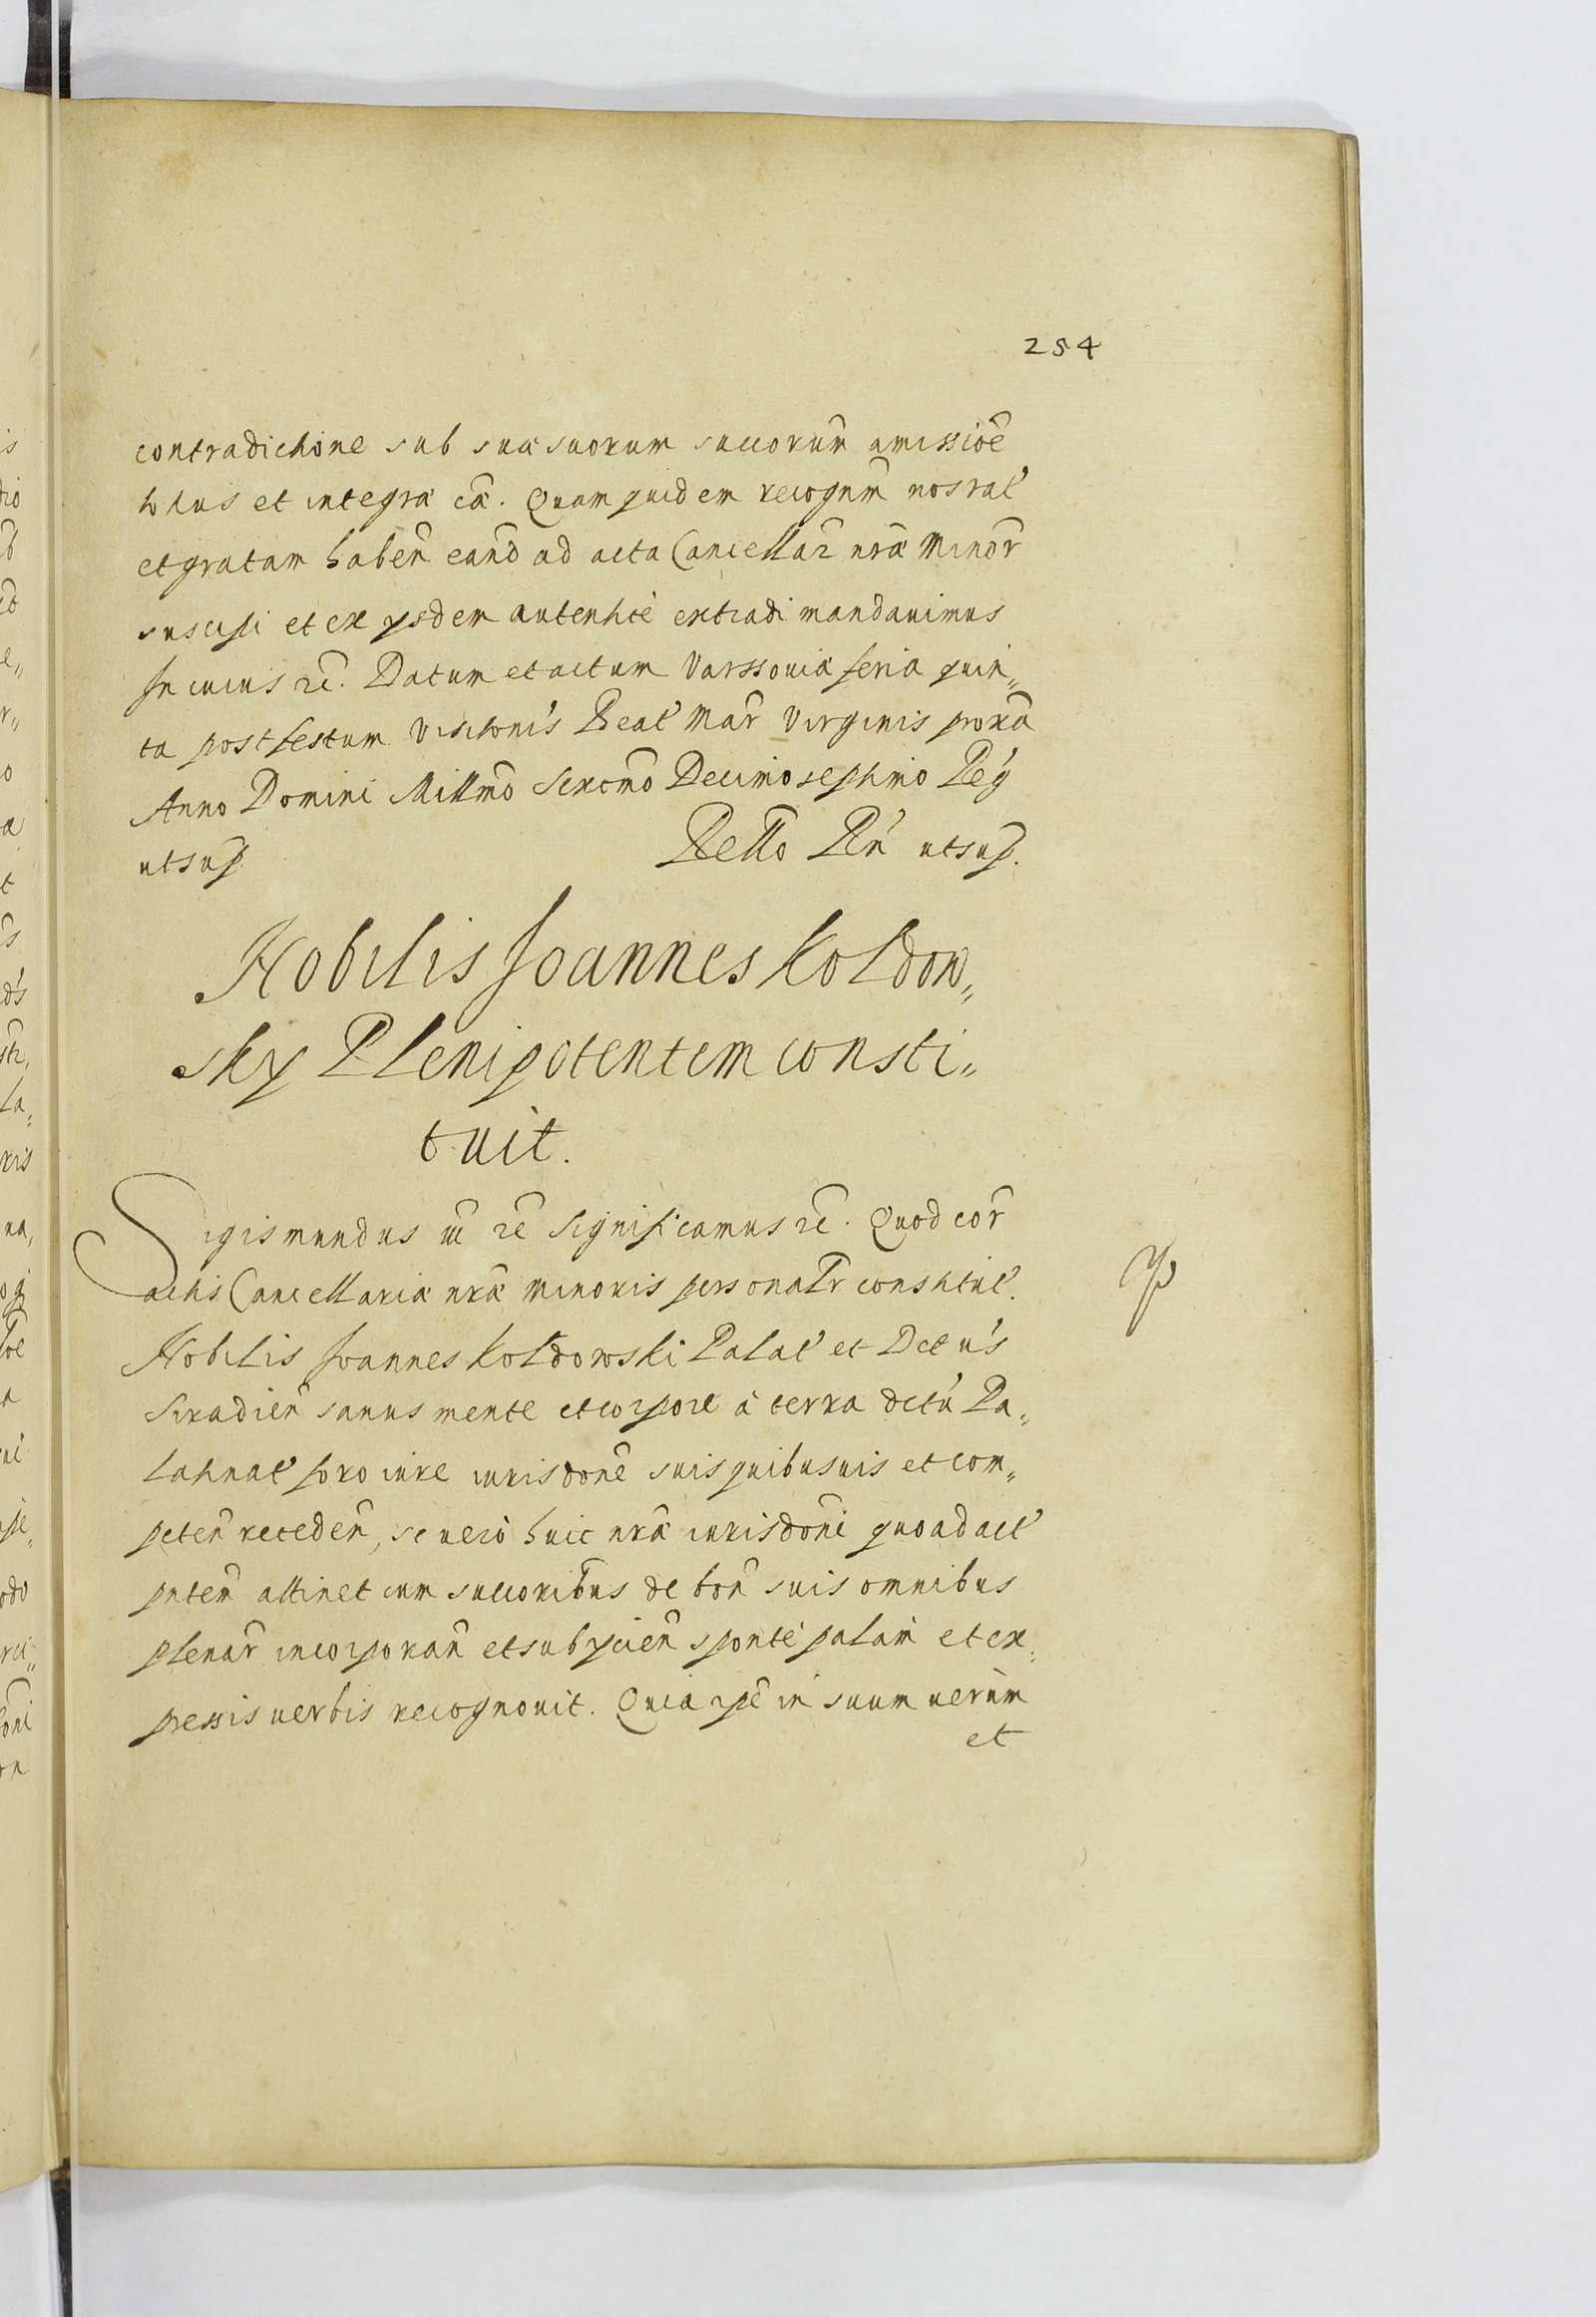 254
contradictione sub sua suorum succorum̄ amissiōe
totius et integra cā. Quam quidem recognm̄ nos rat̉
et gratam haben̄ eand̄ ad acta Cancellar̄ nrā Minor̄
suscipi et ex ÿsdem autenticè extradi mandauimus
In cuius rē. Datum et actum Varssouiæ feria quin„
ta post festum Visitonis Beat̉ Mar̄ Virginis proxā
Anno Domini Millmō Sexcmō Decimoseptimo Reg̉
utsup. Rellō Rn̉ utsup.
Nobilis Joannes Koldow„
sky Plenipotentem consti„
tuit.
Sigismundus iii rē Significamus rē. Quod cor̄
actis Cancellariæ nræ Minoris personalr̄ constitut̉.
Nobilis Joannes Koldowski Palat̉ et Dctus
Siradien̄ sanus mente et corpore à terra dctu̇ Pa„
latinat̉ foro iure iurisdonē suis quibusuis et com„
peten̄ receden̄, se uerò huic nræ iurisdonī quoad act̉
pnten̄ attinet cum succoribus de bon̄ suis omnibus
plenar̄ incorporan̄ et subÿcien̄ spontè palàm et ex„
pressis uerbis recognouit. Quia ipē in suum uerùm
et